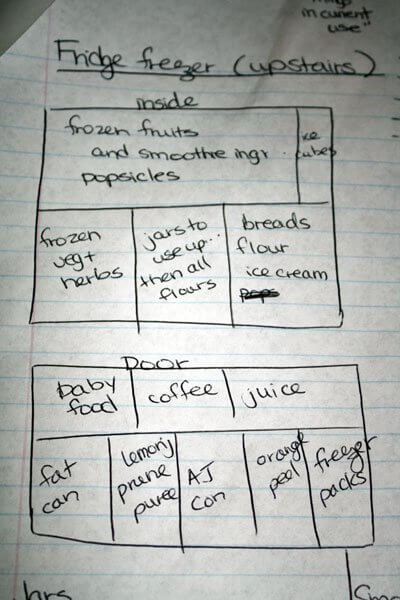 in current
use"
Fridge freezer (upstairs)
inside
frozen fruits
and smoothie ingr.
popsicles
ice
cubes
frozen
veg +
herbs
jars to
use up..
then all
flours
breads
flour
ice cream
Door
baby
food
coffee
juice
fat
can
lemony
prune
puree
AJ
con
orange
peel
freezer
packs
hrs